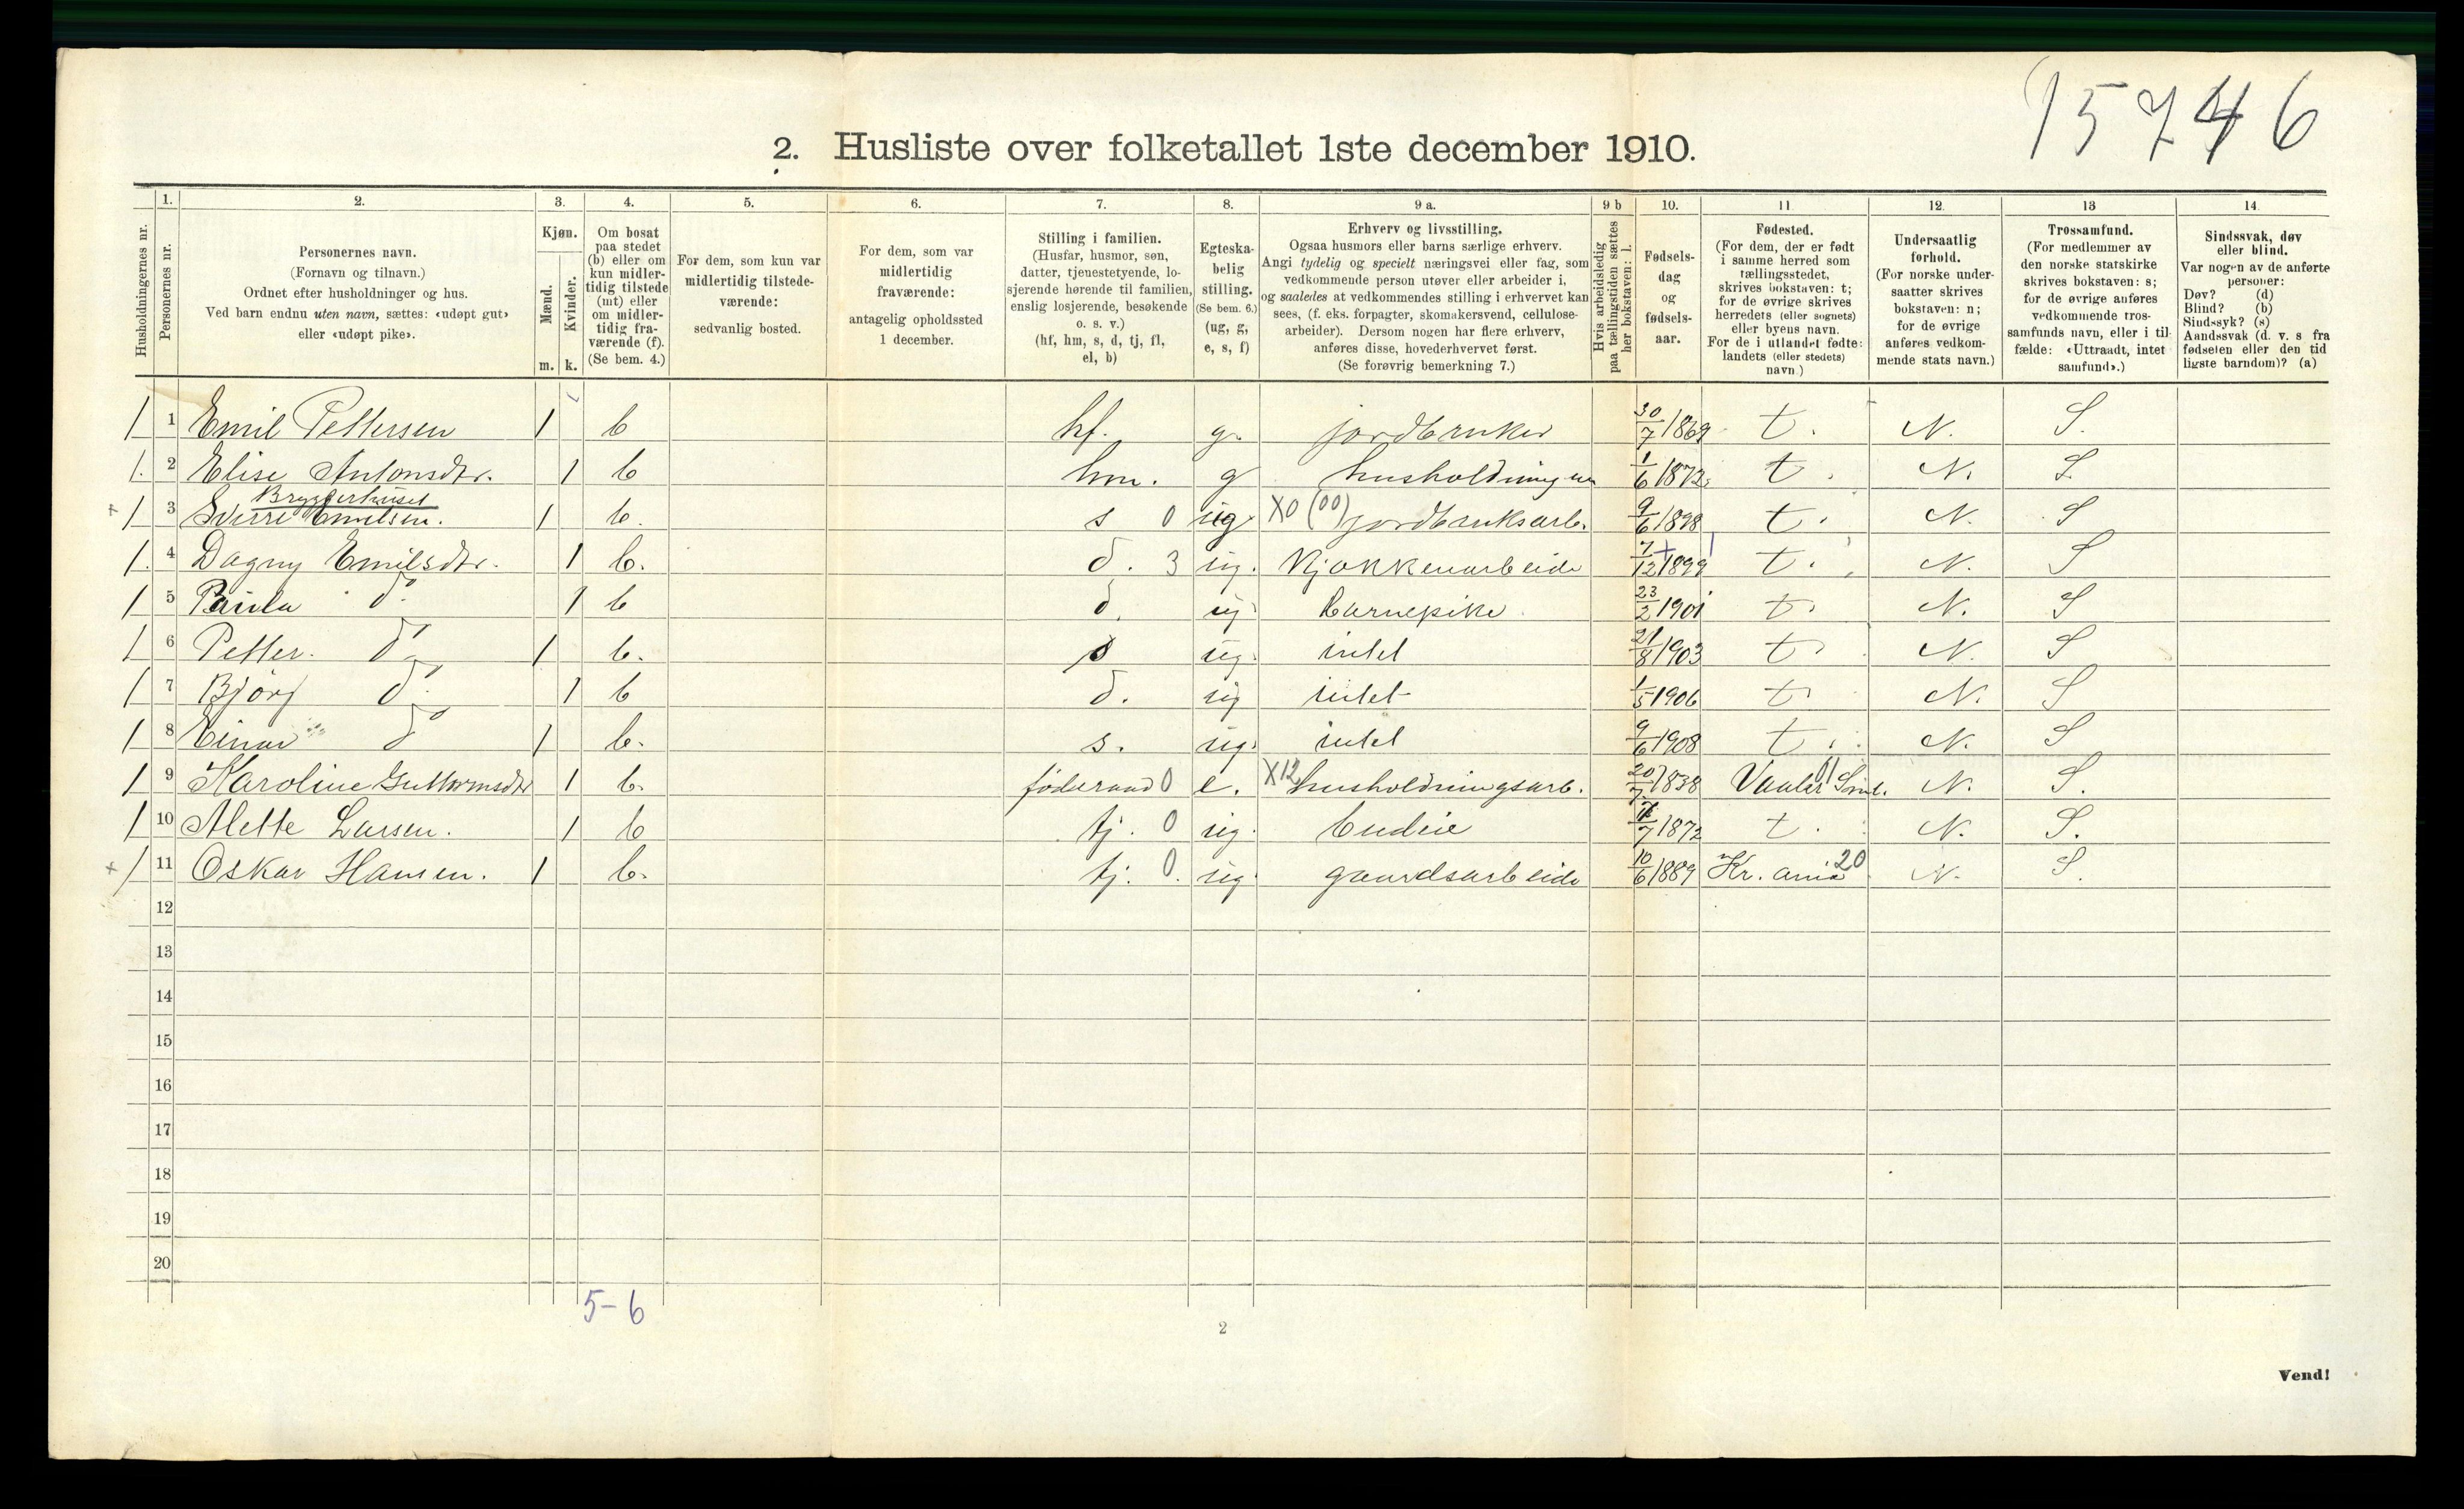 15746
2. Husliste over folketallet 1ste december 1910.
Husholdningernes nr.
1. Personernes nr.
2. Personernes navn.
(Fornavn og tilnavn.)
Ordnet efter husholdninger og hus.
Ved barn endnu uten navn, sættes: «udøpt gut»
eller «udøpt pike».
3. Kjøn.
Mænd. m.
Kvinder. k.
4. Om bosat
paa stedet
(b) eller om
kun midler-
tidig tilstede
(mt) eller
om midler-
tidig fra-
værende (f).
(Se bem. 4.)
5. For dem, som kun var
midlertidig tilstede-
værende:
sedvanlig bosted.
6. For dem, som var
midlertidig
fraværende:
antagelig opholdssted
1 december.
7. Stilling i familien.
(Husfar, husmor, søn,
datter, tjenestetyende, lo-
sjerende hørende til familien,
enslig losjerende, besøkende
o. s. v.)
(hf, hm, s, d, tj, fl,
el, b)
8. Egteska-
belig
stilling.
(Se bem. 6.)
(ug, g,
e, s, f)
9 a. Erhverv og livsstilling.
Ogsaa husmors eller barns særlige erhverv.
Angi tydelig og specielt næringsvei eller fag, som
vedkommende person utøver eller arbeider i,
og saaledes at vedkommendes stilling i erhvervet kan
sees, (f. eks. forpagter, skomakersvend, cellulose-
arbeider). Dersom nogen har flere erhverv,
anføres disse, hovederhvervet først.
(Se forøvrig bemerkning 7.)
9 b Hvis arbeidsledig
paa tællingstiden sættes
her bokstaven: l.
10. Fødsels-
dag
og
fødsels-
aar.
11. Fødested.
(For dem, der er født
i samme herred som
tællingsstedet,
skrives bokstaven: t;
for de øvrige skrives
herredets (eller sognets)
eller byens navn.
For de i utlandet fødte:
landets (eller stedets)
navn.)
12. Undersaatlig
forhold.
(For norske under-
saatter skrives
bokstaven: n;
for de øvrige
anføres vedkom-
mende stats navn.)
13 Trossamfund.
(For medlemmer av
den norske statskirke
skrives bokstaven: s;
for de øvrige anføres
vedkommende tros-
samfunds navn, eller i til-
fælde: «Uttraadt, intet
samfund».)
14. Sindssvak, døv
eller blind.
Var nogen av de anførte
personer:
Døv? (d)
Blind? (b)
Sindssyk? (s)
Aandssvak (d. v. s. fra
fødselen eller den tid
ligste barndom)? (a)
1 1 Emil Pettersen 1 b hf. g. jordbruker 30/7 1869 t. N. S.
1. 2 Elise Antonsdtr. 1 b hm. g husholdningen 1/6 1872 t. N. S.
Bryggerhuset
+ 1 3 Sverre Emilsen. 1 b. s 0 ug X0 (00) jordbruksarb. 9/6 1898 t. N. S
1. 4 Dagny Emilsdtr. 1 b. d. 3 ug. Kjøkkenarbeide 7/12 1899 t. N. S
1 5 Paula do. 1 b d. ug. barnepike. 23/2 1901 t. N. S
1 6 Petter. do. 1 b. s ug. intet 21/8 1903 t N. S
1 7 Bjørg do. 1 b d. ug intet 1/5 1906 t. N. S
1 8 Einar do 1 b. s. ug. intet 9/6 1908 t. N. S
1 9 Karoline Guttormsdtr 1 b. føderaad 0 e. X12 husholdningsarb. 20/7 1838 Vaaler Sml. 01 N. S.
1 10 Alette Larsen. 1 b tj. 0 ug. budeie /7 1872 t. N. S.
+ 1 11 Oskar Hansen. 1 b. tj. 0. ug. gaardsarbeide 10/6 1889 Kr.ania 20 N. S.
12
13
14
15
16
17
18
19
20
5-6
2
Vend!